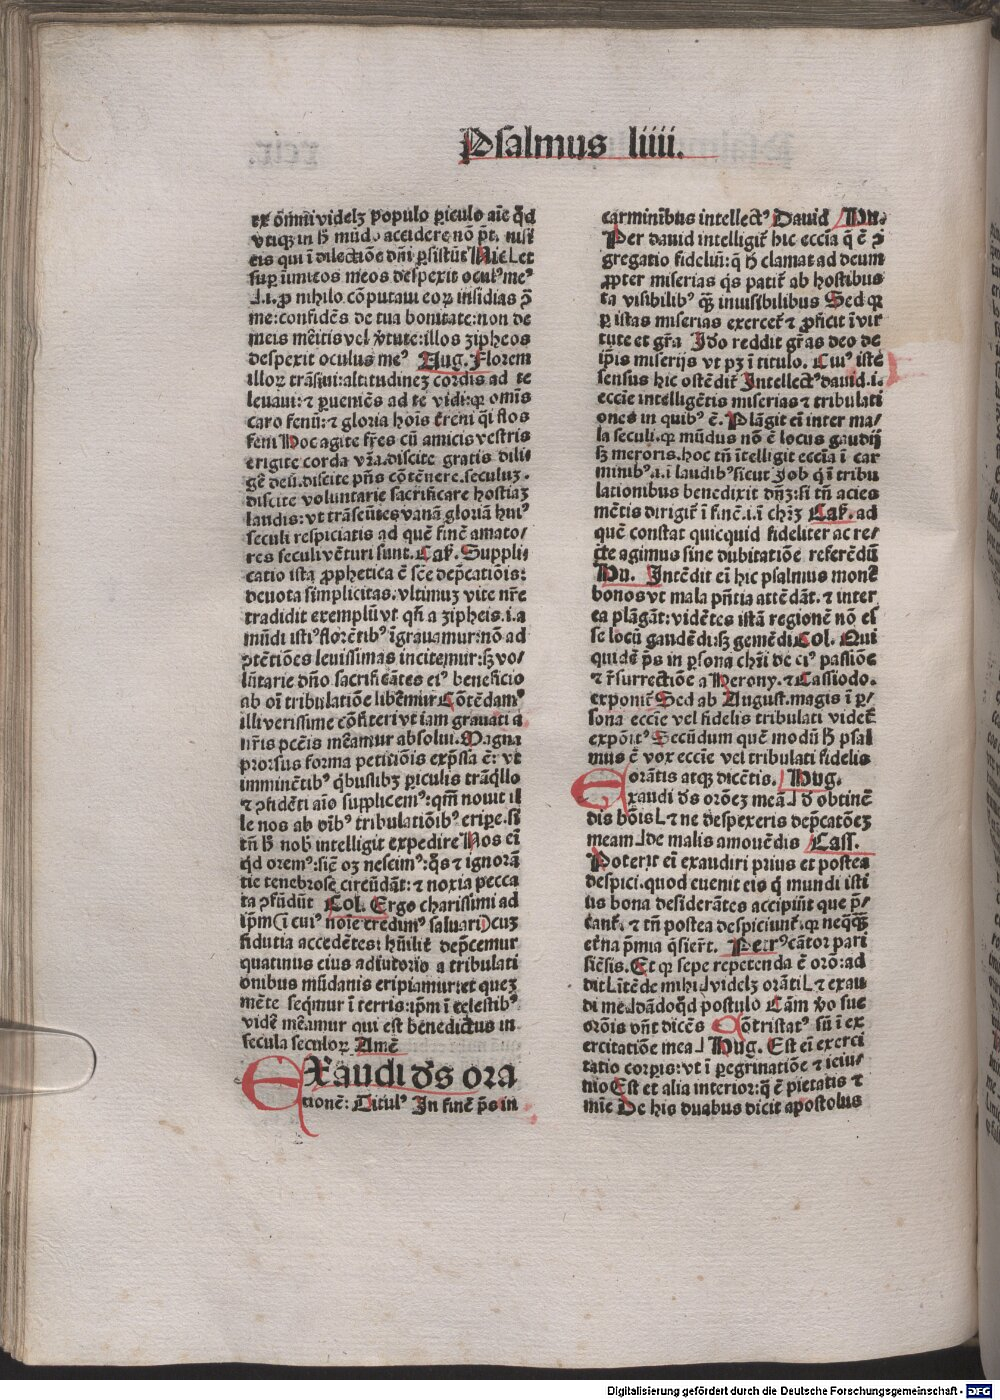 Psalmus liiii.
ex om̄i videlꝫ populo ꝑiculo aīe qd̄
vtiqꝫ in h̄ mūdo accidere nō pn̄t. nisi
eis qui ī dilectiōe dn̄i ꝑsistūt Nicl. et
suꝑ inīicos meos despexit oculꝰ meꝰ
.i. ꝓ nihilo cōputaui eoꝝ insidias ꝯ̄
me: confidēs de tua bonitate: non de
meis mēitis vel v̄tute: illos zipheos
despexit oculus meꝰ Aug. Florem
illoꝝ trāsiui: altitudineꝫ cordis ad te
leuaui: ⁊ ꝑueniēs ad te vidi: qꝛ omīs
caro fenū: ⁊ gloria hoīs t̄reni q̄i flos
feni Hoc agite fr̄es cū amicis vestris
erigite corda vr̄a. discite gratis dili
ḡe deū. discite pn̄s cōtēnere. seculuꝫ.
discite voluntarie sacrificare hostiaꝫ
laudis: vt trāseūtes vanā gloriā huiꝰ
seculi respiciatis ad quē finē amato/
res seculi vēturi sunt. Cas̄. Suppli
catio ista ꝓphetica ē sc̄e dep̄catiōis:
deuota simplicitas. vltimuꝫ vite nr̄e
tradidit exemplū vt qn̄ a zipheis. i. a
mūdi istiꝰ florētibꝰ īgrauamur: nō ad
ꝯtētiōes leuissimas incitemur: sꝫ vo/
lūtarie dn̄o sacrificātes eiꝰ beneficio
ab oī tribulatiōe libemur Cōtēdamꝰ
illi verissime cōfiteri vt iam grauati a
nr̄is pcc̄is mēamur absolui. Magna
prorsus forma petitiōis exp̄ssa ē: vt
imminētibꝰ qͥbuslibꝫ ꝑiculis trāqͥllo
⁊ ꝯfidēti aīo supplicemꝰ: qm̄ nouit il
le nos ab oībꝰ tribulatiōibꝰ eriꝑe. si
tn̄ h̄ nob̄ intelligit expedire Nos em̄
qͥd orem̄: sic̄ oꝫ nescimꝰ: qͦs ⁊ ignorā
tie tenebrose circūdāt: ⁊ noxia pecca
ta ꝯfūdūt Col. Ergo charissimi ad
ip̄m (ī cuiꝰ noīe credimꝰ saluari) cuꝫ
fidutia accedētes: hūilit̄ dep̄cemur
quatinus eius adiutorio a tribulati
onibus mūdanis eripiamur: et queꝫ
mēte seqͥmur ī terris: ip̄m ī celestibꝰ
vidē mēamur qui est benedictus in
secula seculoꝝ Amē
EXaudi ds̄ ora
tionē: Titulꝰ In finē p̄s in
carminibus intellectꝰ Dauid Hu.
Per dauid intelligit᷑ hic ecc̄ia q̄ ē ꝯ
gregatio fideliū: q̄ h̄ clamat ad deum
ꝓpter miserias qͣs patit᷑ ab hostibus
tā visibilibꝰ qͣꝫ inuisibilibus Sed qꝛ
ꝑ istas miserias exercet᷑ ⁊ ꝓficit ī vir
tute et gr̄a Ido reddit gr̄as deo de
ip̄is miserijs vt pꝫ ī titulo. Cuiꝰ iste
sensus hic ostēdit᷑ Intellectꝰ dauid. i.
ecc̄ie intelligētis miserias ⁊ tribulati
ones in quibꝰ ē. Plāgit em̄ inter ma/
la seculi. qꝛ mūdus nō ē locus gaudij
sꝫ meroris. hoc tn̄ ītelligit ecc̄ia ī car
minibꝰ. i. ī laudibꝰ sicut Job qͥ ī tribu
lationibus benedixit dn̄ꝫ: si tn̄ acies
mētis dirigit᷑ ī finē. i. ī chr̄ꝫ Cas̄. ad
quē constat quicquid fideliter ac re/
cte agimus sine dubitatiōe referēdū
Hu. Intēdit em̄ hic psalmus monē
bonos vt mala pn̄tia attēdāt. ⁊ inter
ea plāgāt: vidētes istā regionē nō es
se locū gaudēdi: sꝫ gemēdi Col. Qui
quidē p̄s in ꝑsona chr̄i de eiꝰ passiōe
⁊ r̄surrectiōe a Hierony. ⁊ Cassiodo.
exponit᷑ Sed ab August. magis ī ꝑ/
sona ecc̄ie vel fidelis tribulati videt᷑
expōitꝰ Secūdum quē modū h̄ psal
mus ē vox ecc̄ie vel tribulati fidelis
orātis atqꝫ dicētis. Hug.
Exaudi ds̄ orōeꝫ meā] ꝺ̄ obtinē
dis bōis [⁊ ne despexeris dep̄catōeꝫ
meam] de malis amouēdis Cass.
Poterit em̄ exaudiri prius et postea
despici. quod euenit eis qͥ mundi isti
us bona desiderātes accipiūt que p̄/
cant᷑. ⁊ tn̄ postea despiciunt᷑. qꝛ neqͣꝙ
et̄na p̄mia qͣsier̄t. Petrꝰ cātor pari
siēsis. Et qꝛ sepe repetenda ē orō: ad
dit [ītēde mihi] videlꝫ orāti [⁊ exau
di me] dādo qd̄ postulo Cām v̄o sue
orōis vn̄t dicēs Cōtristatꝰ sū ī ex
ercitatiōe mea] Hug. Est em̄ exerci
tatio corpꝑis: vt ī ꝑegrinatiōe ⁊ ieiu/
nio Est et alia interior: q̄ ē pietatis ⁊
mīe De his duabus dicit apostolus
Digitalisierung gefördert durch die Deutsche Forschungsgemeinschaft - DFG